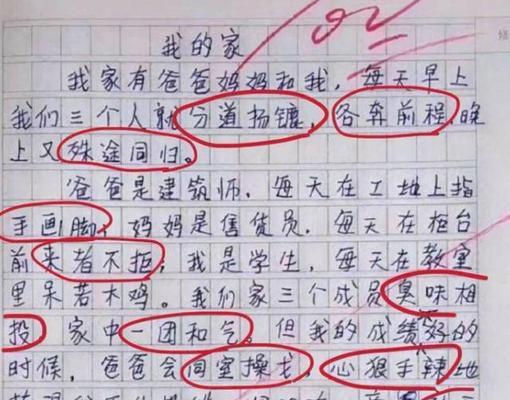 我的家
我家有爸爸妈妈和我，每天早上
我们三个人就分道扬镳，各奔前程，晚
上又殊途同归。
爸爸是建筑师，每天在工地上指
手画脚，妈妈是售货员，每天在柜台
前来者不拒，我是学生，每天在教室
里呆若木鸡。我们家三个成员臭味相
投，家中一团和气。但我的成绩不好的
时候，爸爸会同室操戈，心狠手辣地